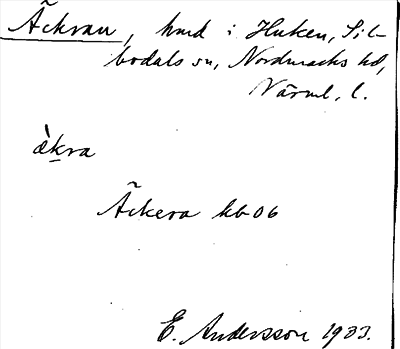 Äckran, hmd i Huken, Sil-
bodals sn, Nordmarks hd,
Värml. l.
ǜkra
Äckera kb 06
E. Andersson 1933.